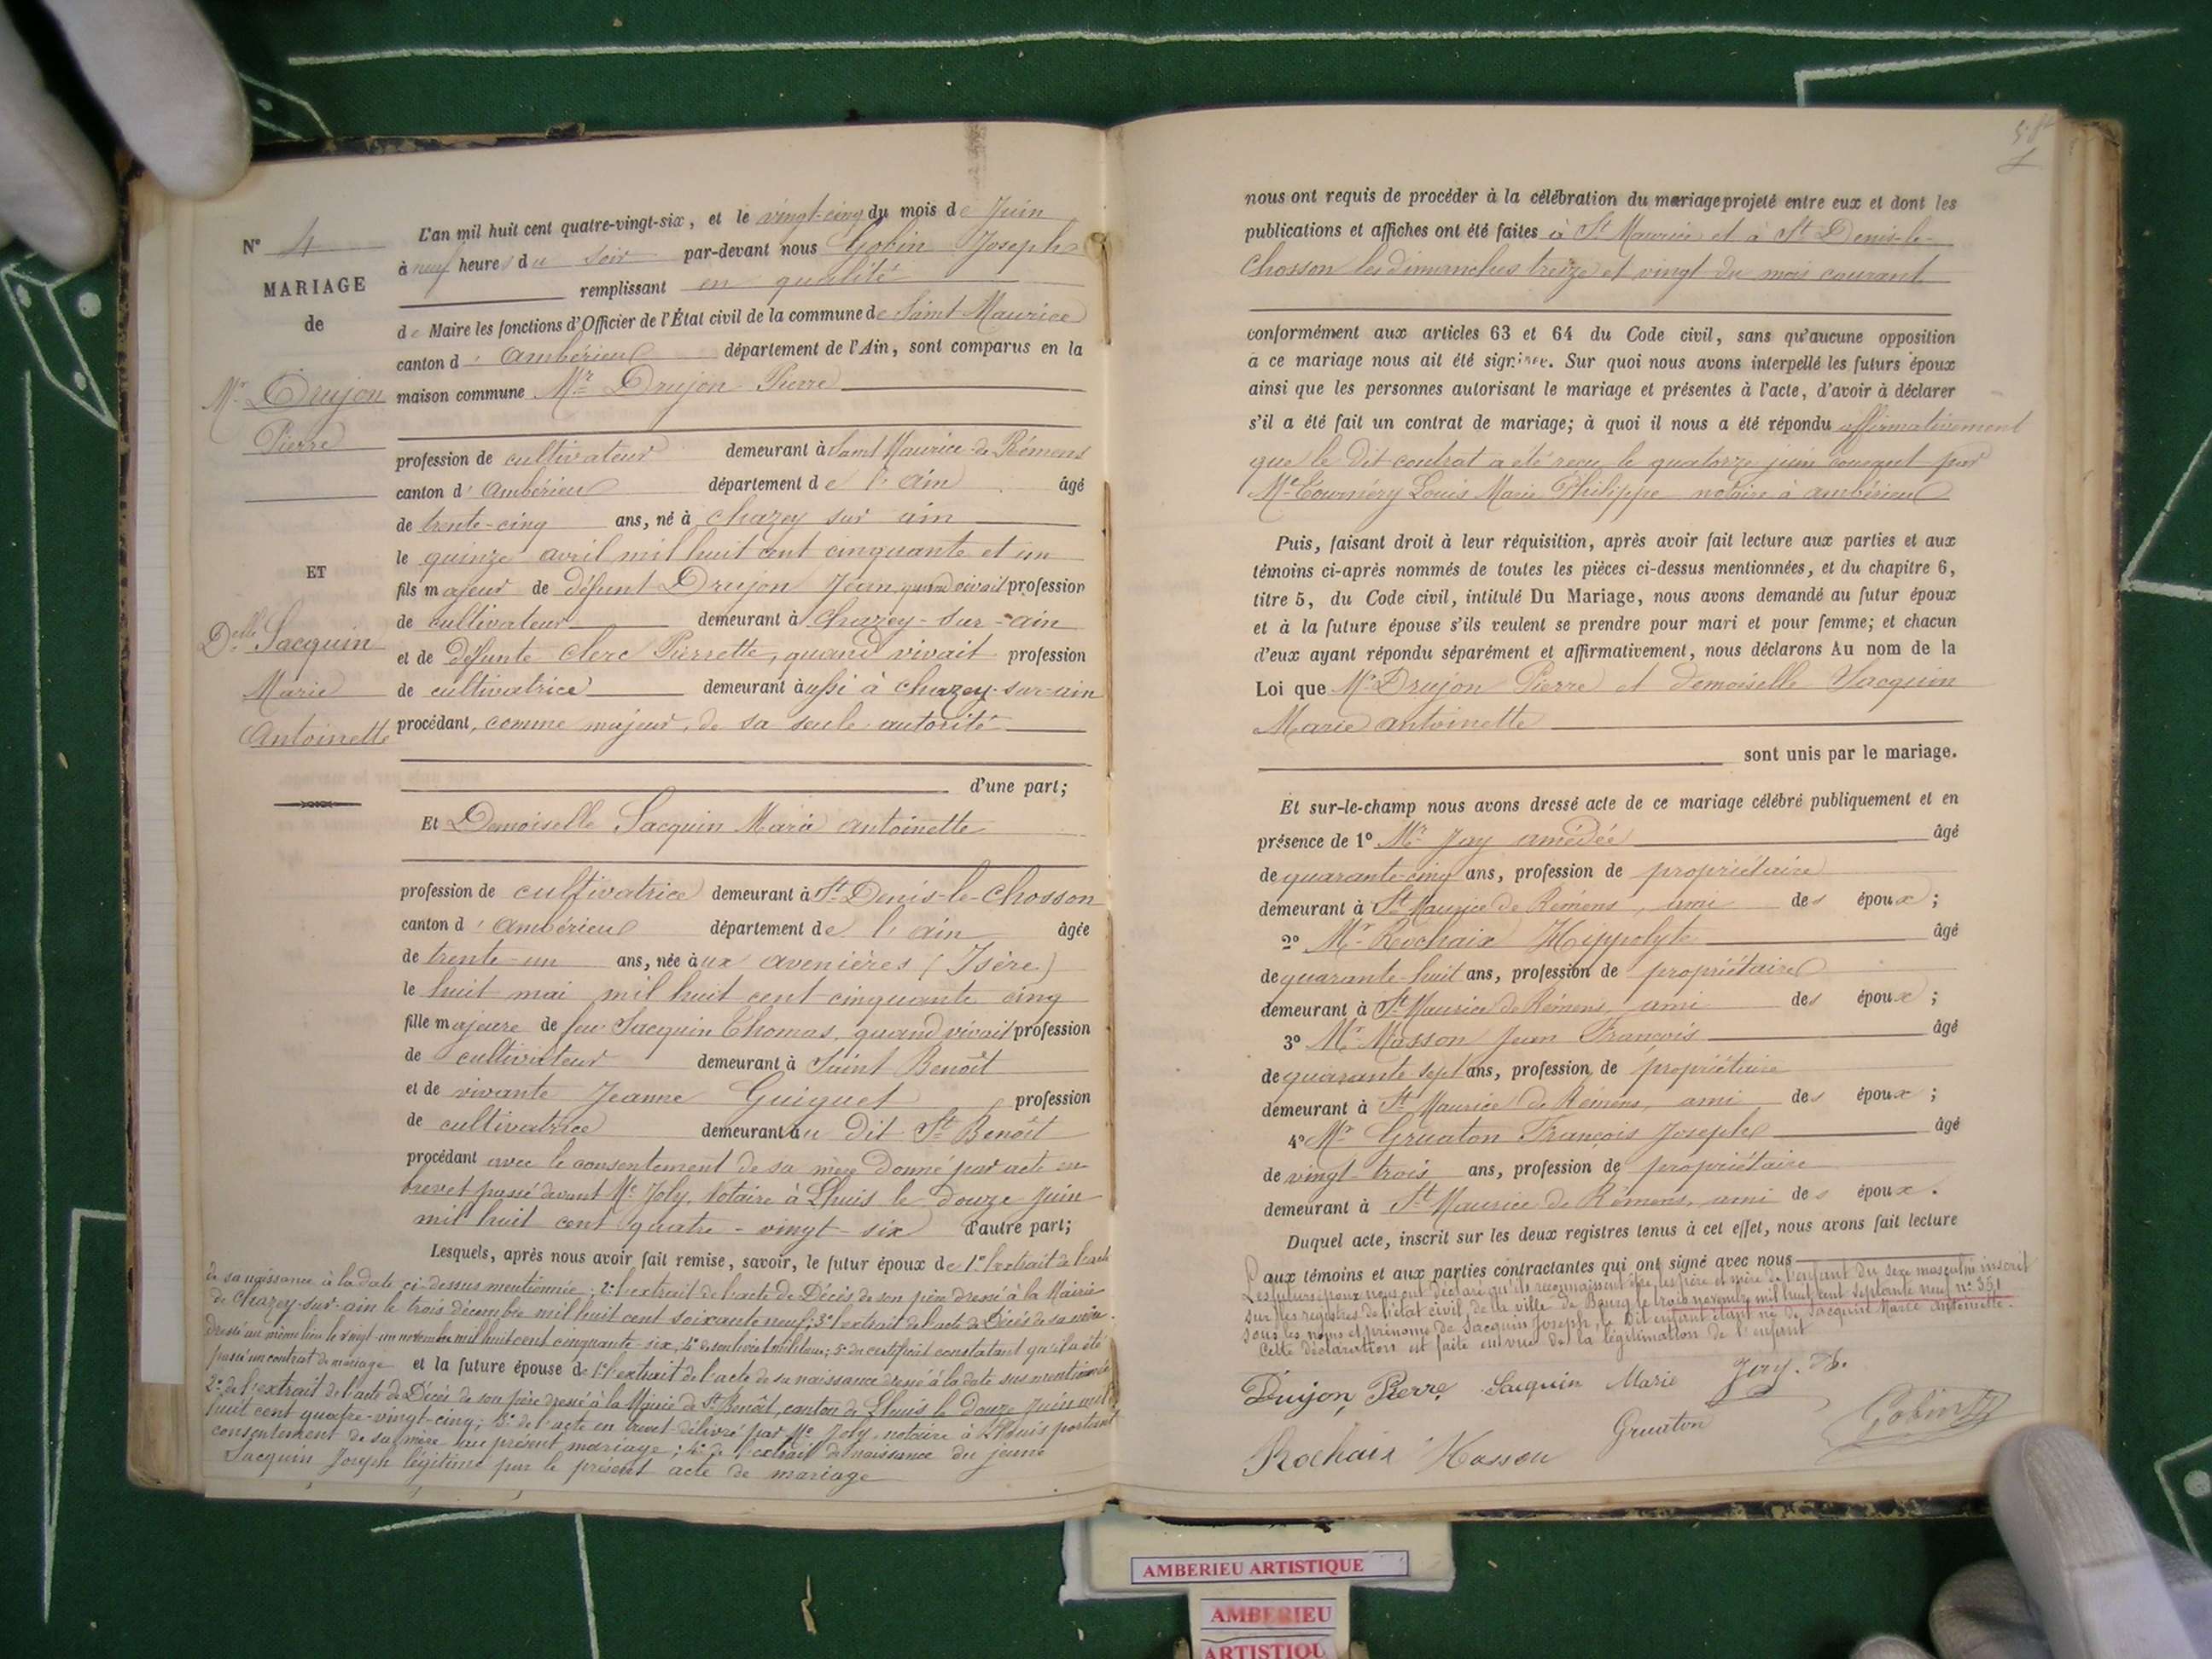 N° 4
MARIAGE
de
Mr Drujon
Pierre
ET
Delle Jacquin
Marie
Antoinette
L'an mil huit cent quatre-vingt-six, et le vingt-cinq du mois de Juin
à neuf heures du soir par-devant nous Gobin Joseph
remplissant en qualité
de Maire les fonctions d'Officier de l'État civil de la commune de Saint Maurice
canton d'Ambérieu département de l'Ain, sont comparus en la
maison commune Mr Drujon Pierre
profession de cultivateur demeurant à Saint Maurice de Rémens
canton d'Ambérieu département de l'ain âgé
de trente-cinq ans, né à Chazey sur ain
le quinze avril mil huit cent cinquante et un
fils majeur de défunt Drujon Jean quand vivait profession
de cultivateur demeurant à Chazey-sur-ain
et de défunte Clerc Pierrette, quand vivait profession
de cultivatrice demeurant aussi à Chazey-sur-ain
procédant, comme majeur, de sa seule autorité
d'une part;
Et Demoiselle Jacquin Marie antoinette
profession de cultivatrice demeurant à St Denis-le-Chosson
canton d'ambérieu département de l'ain âgée
de trente-un ans, née aux avenières (Isère)
le huit mai mil huit cent cinquante cinq
fille majeure de feu Jacquin Thomas, quand vivait profession
de cultivateur demeurant à Saint Benoît
et de vivante Jeanne Guiguet profession
de cultivatrice demeurant au dit St Benoît
procédant avec le consentement de sa mère donné par acte en
brevet passé devant Me Joly, Notaire à Lhuis le douze Juin
mil huit cent quatre-vingt-six d'autre part;
Lesquels, après nous avoir fait remise, savoir, le futur époux de 1° l'extrait de l'acte
de sa naissance à la date ci-dessus mentionnée; 2° l'extrait de l'acte de Décès de son père dressé à la Mairie
de Chazey-sur-ain le trois décembre mil huit cent soixante neuf; 3° l'extrait de l'acte de Décès de sa mère
dressé au même lieu le vingt-un novembre mil huit cent cinquante-six; 4° de son livret militaire; 5° du certificat constatant qu'il a été
passé un contrat de mariage et la future épouse de 1° l'extrait de l'acte de sa naissance dressé à la date sus mentionnée
2° de l'extrait de l'acte de Décès de son père dressé à la Mairie de St Benoît, canton de Lhuis le douze Juin mil
huit cent quatre-vingt-cinq; 3° de l'acte en brevet délivré par Me Joly, notaire à Lhuis portant
consentement de sa mère au présent mariage; 4° de l'extrait de naissance du jeune
Jacquin Joseph légitimé par le présent acte de mariage
nous ont requis de procéder à la célébration du mariage projeté entre eux et dont les
publications et affiches ont été faites à St Maurice et à St Denis-le-
Chosson les dimanches treize et vingt du mois courant
conformément aux articles 63 et 64 du Code civil, sans qu'aucune opposition
à ce mariage nous ait été signifiée. Sur quoi nous avons interpellé les futurs époux
ainsi que les personnes autorisant le mariage et présentes à l'acte, d'avoir à déclarer
s'il a été fait un contrat de mariage; à quoi il nous a été répondu affirmativement
que le dit contrat a été reçu le quatorze juin courant par
Me Tournéry Louis Marie Philippe notaire à ambérieu
Puis, faisant droit à leur réquisition, après avoir fait lecture aux parties et aux
témoins ci-après nommés de toutes les pièces ci-dessus mentionnées, et du chapitre 6,
titre 5, du Code civil, intitulé Du Mariage, nous avons demandé au futur époux
et à la future épouse s'ils veulent se prendre pour mari et pour femme; et chacun
d'eux ayant répondu séparément et affirmativement, nous déclarons Au nom de la
Loi que Mr Drujon Pierre et demoiselle Jacquin
Marie antoinette
sont unis par le mariage.
Et sur-le-champ nous avons dressé acte de ce mariage célébré publiquement et en
présence de 1° Mr Jay amédée âgé
de quarante-cinq ans, profession de propriétaire
demeurant à St Maurice de Rémens, ami des époux;
2° Mr Rochaix Hyppolyte âgé
de quarante-huit ans, profession de propriétaire
demeurant à St Maurice de Rémens, ami des époux;
3° Mr Masson Jean François âgé
de quarante sept ans, profession de propriétaire
demeurant à St Maurice de Rémens, ami des époux;
4° Mr Gruaton François Joseph âgé
de vingt-trois ans, profession de propriétaire
demeurant à St Maurice de Rémens, ami des époux.
Duquel acte, inscrit sur les deux registres tenus à cet effet, nous avons fait lecture
aux témoins et aux parties contractantes qui ont signé avec nous
Les futurs époux nous ont déclaré qu'ils reconnaissent être les père et mère de l'enfant du sexe masculin inscrit
sur les registres de l'état civil de la ville de Bourg le trois novembre mil huit cent septante neuf n° 351
sous les noms et prénoms de Jacquin Joseph, le Dit enfant étant né de Jacquin Marie antoinette.
Cette déclaration est faite en vue de la légitimation de l'enfant
Drujon Pierre Jacquin Marie Jay. A.
Rochaix Masson Gruaton Gobin
AMBERIEU ARTISTIQUE
AMBERIEU
ARTISTIQU